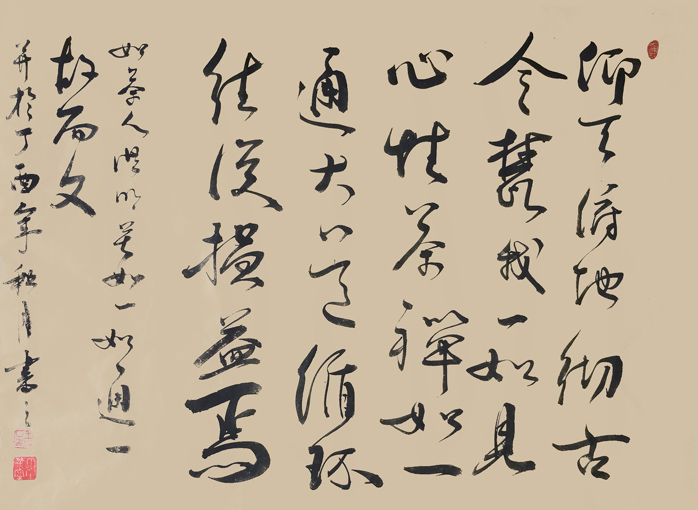 仰天俯地彻古
今慧我一如見
心性茶禪如一
通大道循环
往復損益焉
如茶人誤明其如一如通一
故而文
并於丁酉年秋月書之